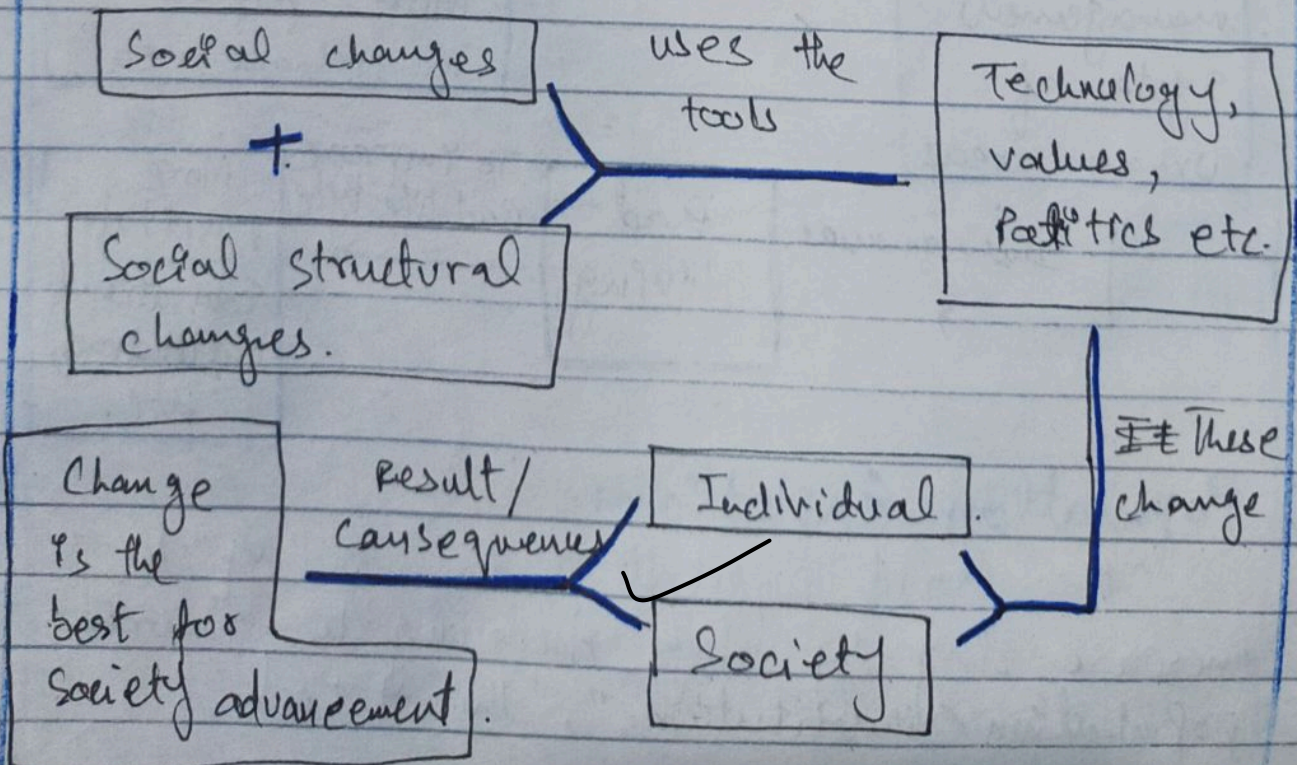 Social changes
+
Social structural
changes.
uses the
tools
Technology,
values,
Politics etc.
These
change
Individual.
Society
Result/
Causequences
Change
is the
best for
Society advancement.